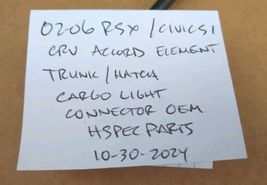 02-06 RSX / CIVIC SI
CRV ACCORD ELEMENT
TRUNK / HATCH
CARGO LIGHT
CONNECTOR OEM
HSPEC PARTS
10-30-2024